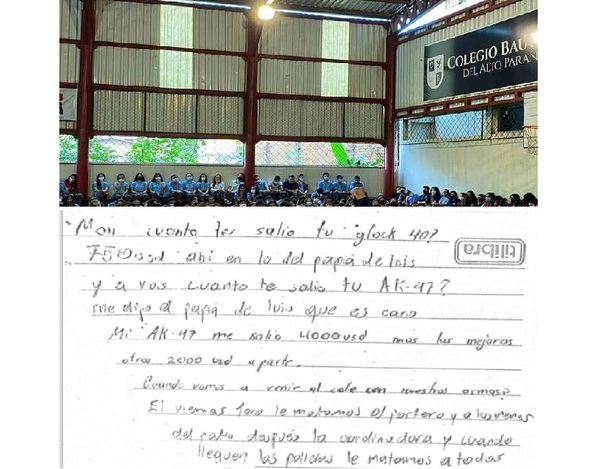 COLEGIO BAU
DEL ALTO PARAN
Mon cuanto tes salio tu glock 40?
tilibra
750usd ahi en lo del papá de lois
y a vos cuanto te salio tu AK-47?
me dijo el papá de luis que es caro
Mi AK-47 me salio 4000usd mas las mejoras
otros 2000 usd aparte.
Cuando vamos a venir al cole con nuestras armas?
El viernes le matamos al portero y a los nenes
del patio después la cordinadora y cuando
lleguen los policias le matamos a todos